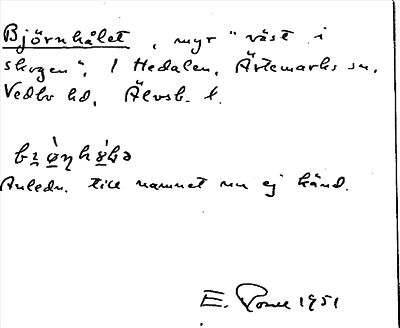 Björnhålet, myr "väst i
skogen", i Hedalen, Ärtemarks sn.
Vedbo hd, Älvsb. l.
Anledn. till namnet nu ej känd.
E. 1951